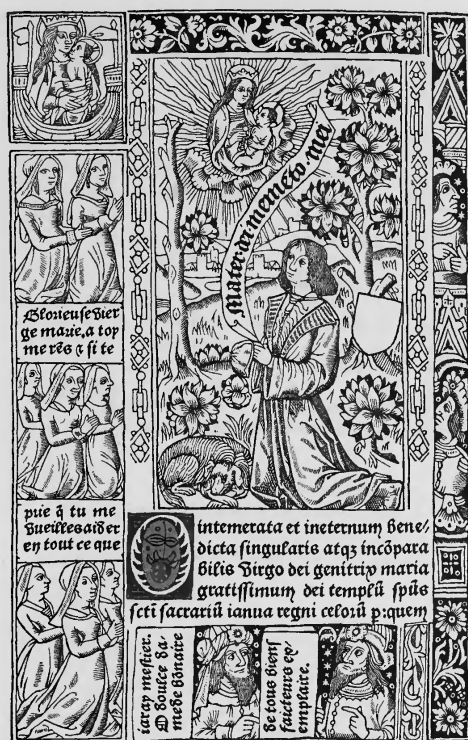 Mater dei memēto mei
Glorieuse vier
ge marie, a toy
me rēs & si te
prie q̄ tu me
vueilles aider
en tout ce que
O intemerata et ineternum bene/
dicta singularis atqz incōpara
bilis virgo dei genitrix maria
gratissimum dei templū spūs
scti sacrariū ianua regni celoiū p:quem
iaray mestier.
O doulce da-
me de bōnaire
de tous biens
facteure ex/
emplaire.